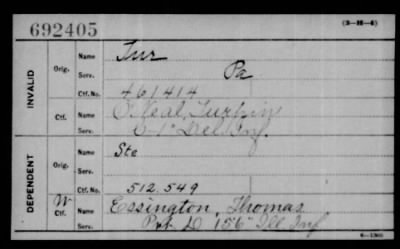 692405 (3-H-6)
INVALID
Orig. Name Tur
Serv. Pa
Ctf. No. 461414
Ctf. Name O'Neal, Turpin
Serv. C-1" Del Inf.
DEPENDENT
Orig. Name Ste
Serv.
Ctf. No. 512,549
W Ctf. Name Essington, Thomas
Serv. Pvt D 156" Ill Inf